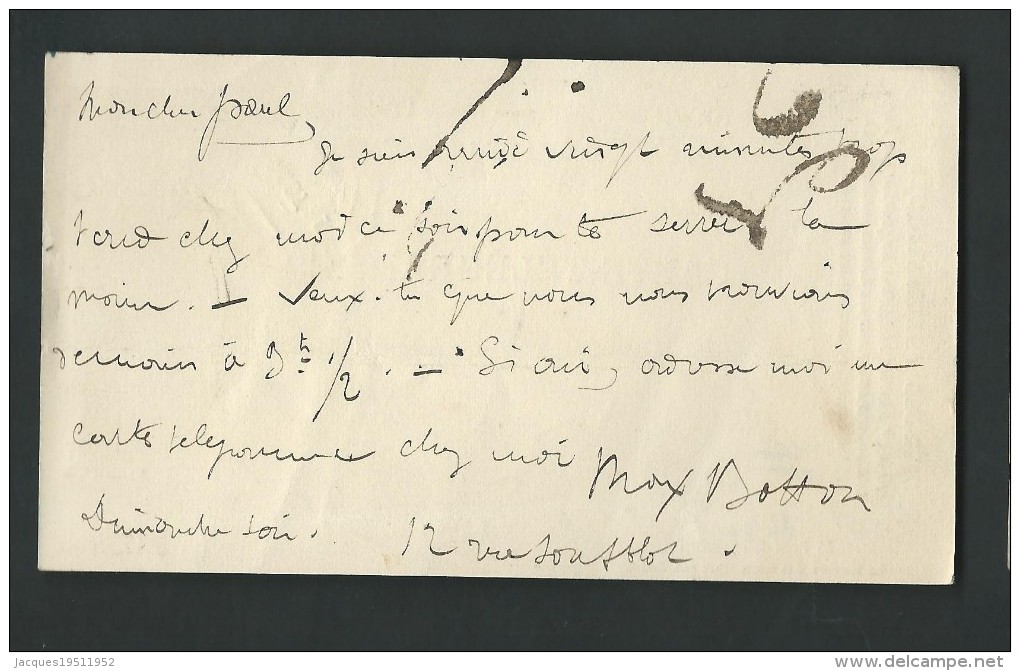 Mon cher Paul,
Je suis arrivé vingt minutes trop
tard chez moi ce soir pour te serrer la
main. — Veux-tu que nous nous trouvions
demain à 9h 1/2. — Si oui, adresse moi une
carte télégramme chez moi
Max Botton
Dimanche soir. 12 rue Soufflot.
Jacques19511952
delcampe.net